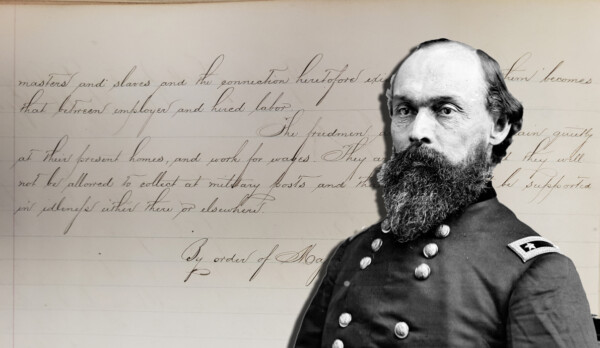 masters and slaves and the connection heretofore exi them becomes
that between employer and hired labor.
The freedmen ain quietly
at their present homes, and work for wages. They a d they will
not be allowed to collect at military posts and th be supported
in idleness either there or elsewhere.
By order of Maj